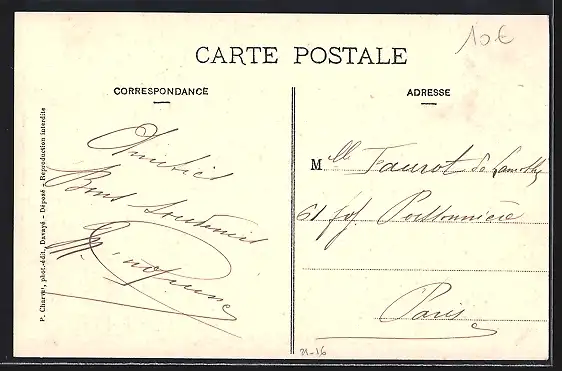 10€
CARTE POSTALE
CORRESPONDANCE
ADRESSE
P. Charvet, phot.-édit., Davayé - Déposé - Reproduction interdite
Amitiés
Bons Souvenirs
M.
Mlle Faurot de Lamothe
61 fg Poissonnière
Paris
21-16